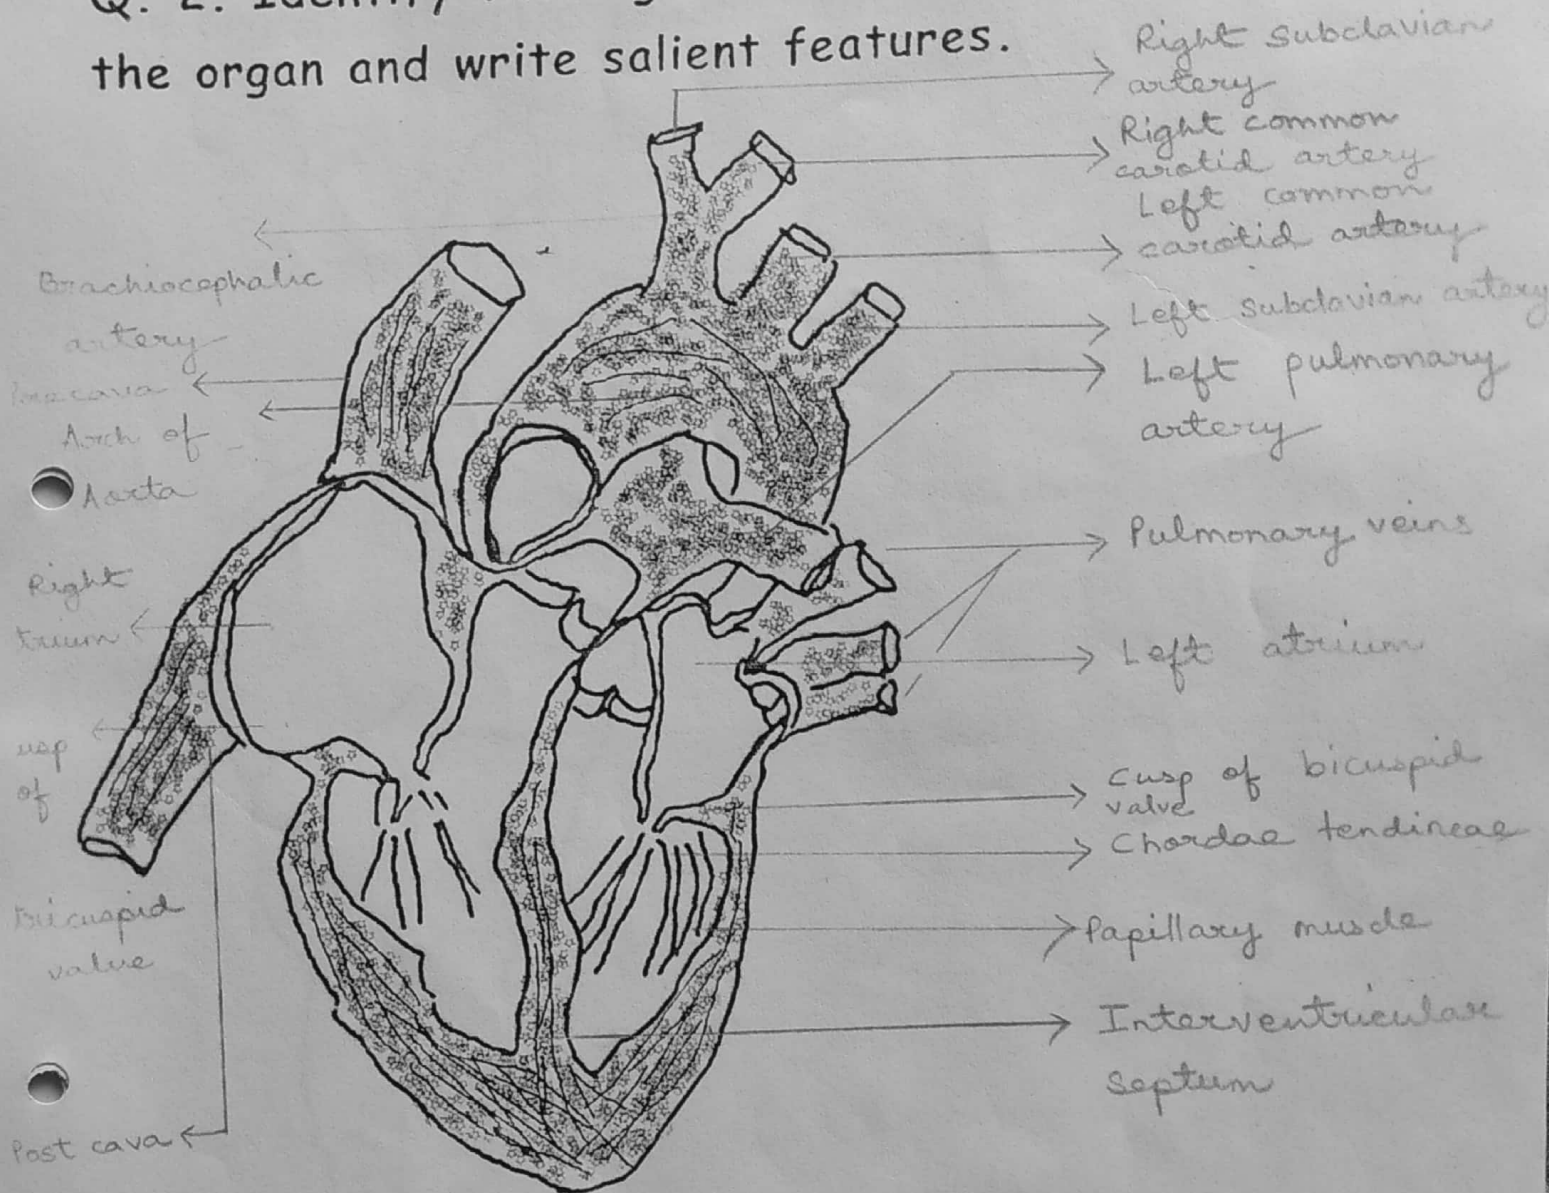 Q. 2. Identify
the organ and write salient features.
Right subclavian
artery
Right common
carotid artery
Left common
carotid artery
Left subclavian artery
Left pulmonary
artery
Pulmonary veins
Left atrium
Cusp of bicuspid
valve
Chordae tendineae
Papillary muscle
Interventricular
septum
Brachiocephalic
artery
Precava
Arch of
Aorta
Right
trium
usp
of
Bicuspid
valve
Post cava